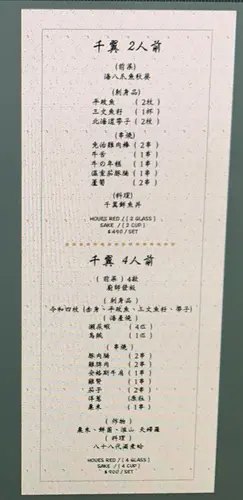 千翼 2人前
(前菜)
湯八爪魚秋葵
(刺身品)
平政魚 ( 2枚 )
三文魚籽 ( 1杯 )
北海道帶子 ( 2枚 )
(串燒)
免治雞肉棒 ( 2串 )
牛舌 ( 1串 )
牛の年糕 ( 1串 )
溫室茄豚腩 ( 1串 )
蘆筍 ( 2串 )
(料理)
千翼鮮魚丼
HOUES RED / ( 2 GLASS )
SAKE / ( 2 CUP )
$ 490 / SET
千翼 4人前
( 前菜 ) 4款
廚師發板
( 刺身品 )
令和四枚 (赤身、平政魚、三文魚籽、帶子)
( 海產燒 )
瀨尿蝦 ( 4匹 )
( 1匹 )
( 串燒 )
豚肉腩 ( 2串 )
雞髀肉 ( 2串 )
安格斯牛肩 ( 1串 )
雞腎 ( 1串 )
茄子 ( 2串 )
洋蔥 (原粒)
粟米 ( 1串 )
( 炸物 )
粟米、鮮菌、淮山 天婦羅
( 料理 )
HOUES RED / ( 4 GLASS )
SAKE / ( 4 CUP )
$ 900 / SET